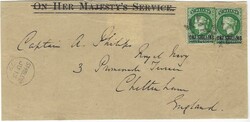 ON HER MAJESTY'S SERVICE.
ONE SHILLING ONE SHILLING
Captain A. Phillips
Royal Navy
3 Terrace
Cheltenham
England